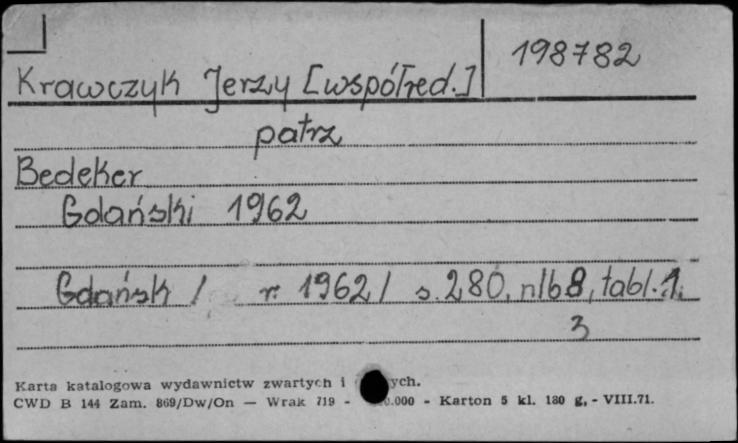 198782
Krawczyk Jerzy [współred.]
patrz
Bedeker
Gdański 1962
Gdańsk / r. 1962 / s. 280, nlb 8, tabl. 1.
3
Karta katalogowa wydawnictw zwartych i ych.
CWD B 144 Zam. 869/Dw/On — Wrak 719 - 0.000 - Karton 5 kl. 180 g, - VIII.71.